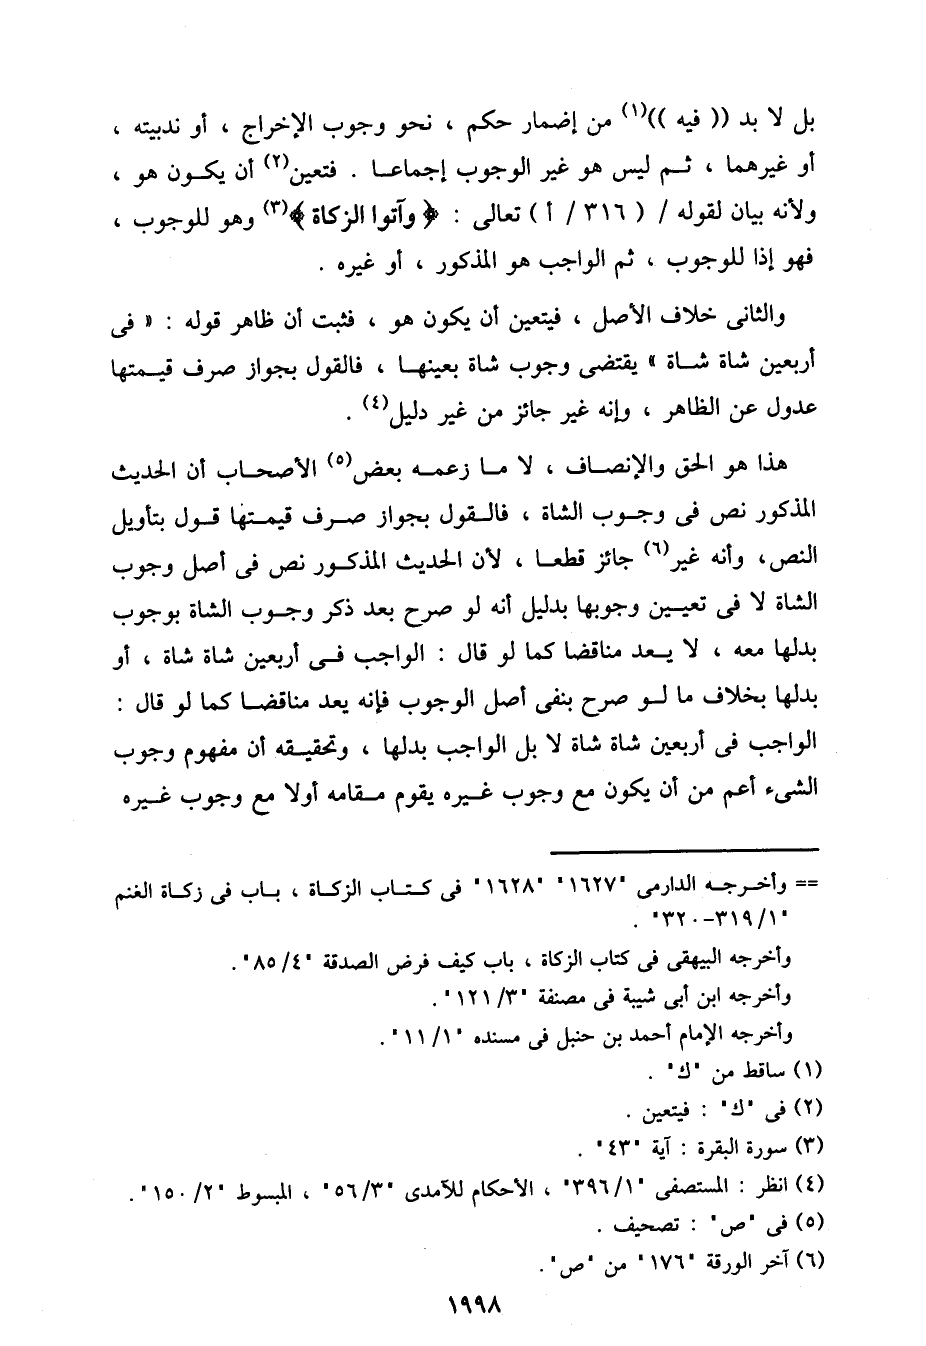 بل لا بد (( فيه ))(١) من إضمار حكم ، نحو وجوب الإخراج ، أو ندبيته ،
أو غيرهما ، ثم ليس هو غير الوجوب إجماعا . فتعين(٢) أن يكون هو ،
ولأنه بيان لقوله / ( ٣١٦ / أ ) تعالى : ﴿ وآتوا الزكاة ﴾(٣) وهو للوجوب ،
فهو إذا للوجوب ، ثم الواجب هو المذكور ، أو غيره .
والثانى خلاف الأصل ، فيتعين أن يكون هو ، فثبت أن ظاهر قوله : « فى
أربعين شاة شاة » يقتضى وجوب شاة بعينها ، فالقول بجواز صرف قيمتها
عدول عن الظاهر ، وإنه غير جائز من غير دليل(٤) .
هذا هو الحق والإنصاف ، لا ما زعمه بعض(٥) الأصحاب أن الحديث
المذكور نص فى وجوب الشاة ، فالقول بجواز صرف قيمتها قول بتأويل
النص، وأنه غير(٦) جائز قطعا ، لأن الحديث المذكور نص فى أصل وجوب
الشاة لا فى تعيين وجوبها بدليل أنه لو صرح بعد ذكر وجوب الشاة بوجوب
بدلها معه ، لا يعد مناقضا كما لو قال : الواجب فى أربعين شاة شاة ، أو
بدلها بخلاف ما لو صرح بنفى أصل الوجوب فإنه يعد مناقضا كما لو قال :
الواجب فى أربعين شاة شاة لا بل الواجب بدلها ، وتحقيقه أن مفهوم وجوب
الشىء أعم من أن يكون مع وجوب غيره يقوم مقامه أولا مع وجوب غيره
== وأخرجه الدارمى "١٦٢٧" "١٦٢٨" فى كتاب الزكاة ، باب فى زكاة الغنم
"٣١٩/١-٣٢٠" .
وأخرجه البيهقى فى كتاب الزكاة ، باب كيف فرض الصدقة "٨٥/٤" .
وأخرجه ابن أبى شيبة فى مصنفة "١٢١/٣" .
وأخرجه الإمام أحمد بن حنبل فى مسنده "١١/١" .
(١) ساقط من "ك" .
(٢) فى "ك" : فيتعين .
(٣) سورة البقرة : آية "٤٣" .
(٤) انظر : المستصفى "٣٩٦/١" ، الأحكام للآمدى "٥٦/٣" ، المبسوط "١٥٠/٢" .
(٥) فى "ص" : تصحيف .
(٦) آخر الورقة "١٧٦" من "ص" .
١٩٩٨